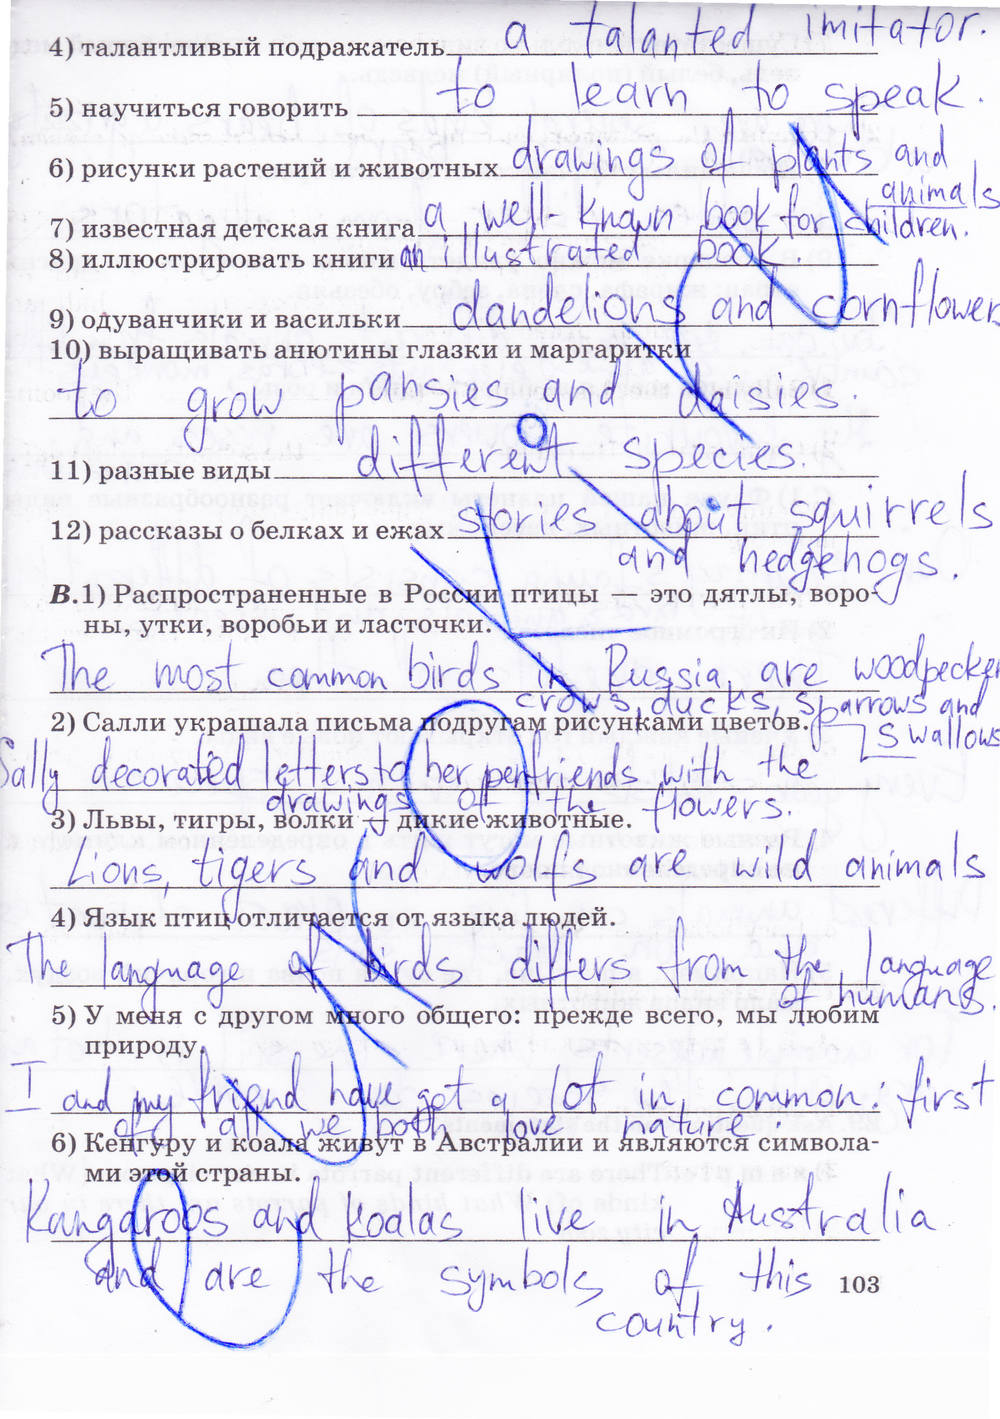 4) талантливый подражатель a talanted imitator.
5) научиться говорить to learn to speak.
6) рисунки растений и животных drawings of plants and
animals
7) известная детская книга a well-known book for children.
8) иллюстрировать книги an illustrated book
9) одуванчики и васильки dandelions and cornflowers
10) выращивать анютины глазки и маргаритки
to grow pansies and daisies.
11) разные виды different species.
12) рассказы о белках и ежах stories about squirrels
and hedgehogs.
B.1) Распространенные в России птицы — это дятлы, воро-
ны, утки, воробьи и ласточки.
The most common birds in Russia are woodpeckers
crows, ducks, sparrows and
swallows
2) Салли украшала письма подругам рисунками цветов.
Sally decorated letters to her penfriends with the
drawings of the flowers.
3) Львы, тигры, волки — дикие животные.
Lions, tigers and wolfs are wild animals
4) Язык птиц отличается от языка людей.
The language of birds differs from the language
of humans.
5) У меня с другом много общего: прежде всего, мы любим
природу.
I and my friend have got a lot in common: first
off all we both love nature.
6) Кенгуру и коала живут в Австралии и являются символа-
ми этой страны.
Kangaroos and koalas live in Australia
and are the symbols of this
country.
103